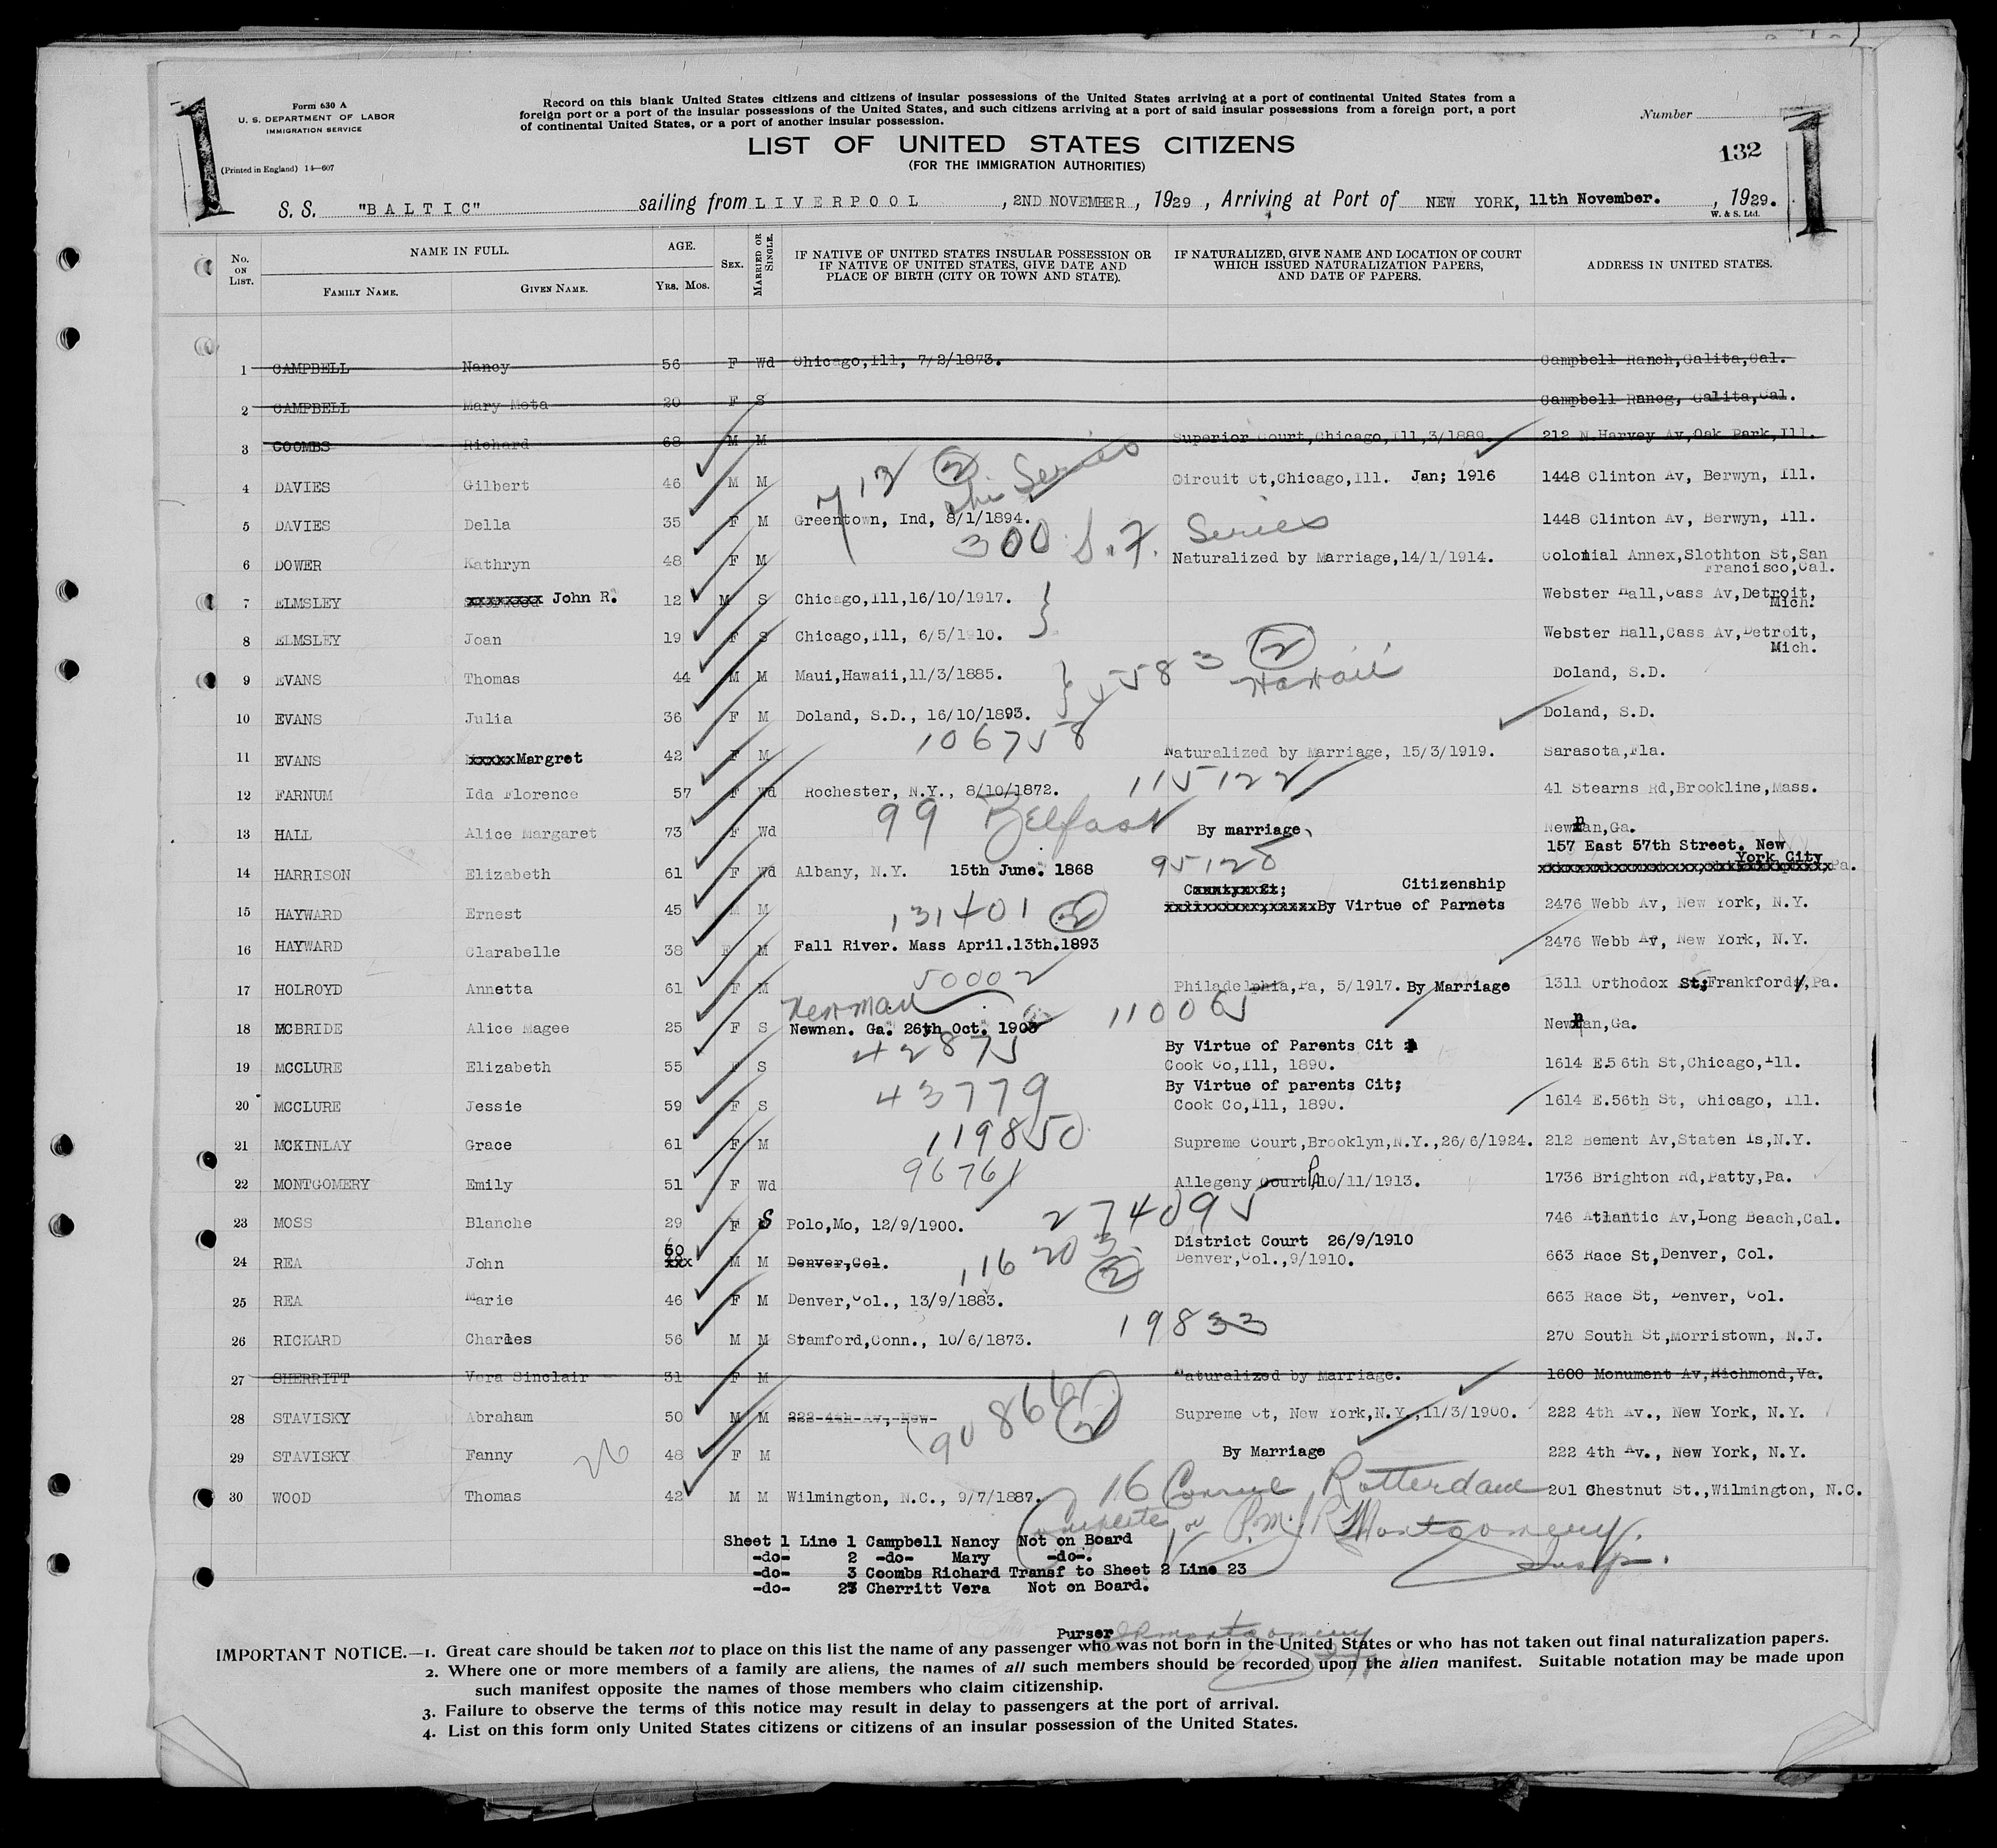 1
Form 630 A
U. S. DEPARTMENT OF LABOR
IMMIGRATION SERVICE
(Printed in England) 14—607
Record on this blank United States citizens and citizens of insular possessions of the United States arriving at a port of continental United States from a
foreign port or a port of the insular possessions of the United States, and such citizens arriving at a port of said insular possessions from a foreign port, a port
of continental United States, or a port of another insular possession.
Number
1
LIST OF UNITED STATES CITIZENS
(FOR THE IMMIGRATION AUTHORITIES)
132
S. S. "BALTIC" sailing from LIVERPOOL, 2ND NOVEMBER, 1929, Arriving at Port of NEW YORK, 11th November., 1929.
W. & S. Ltd.
No. ON LIST. NAME IN FULL. FAMILY NAME. GIVEN NAME. AGE. YRS. MOS. SEX. MARRIED OR SINGLE. IF NATIVE OF UNITED STATES INSULAR POSSESSION OR IF NATIVE OF UNITED STATES, GIVE DATE AND PLACE OF BIRTH (CITY OR TOWN AND STATE). IF NATURALIZED, GIVE NAME AND LOCATION OF COURT WHICH ISSUED NATURALIZATION PAPERS, AND DATE OF PAPERS. ADDRESS IN UNITED STATES.
1 CAMPBELL Nancy 56 F Wd Chicago,Ill, 7/2/1873. Campbell Ranch,Galita,Cal.
2 CAMPBELL Mary Mota 20 F S Campbell Rancg, Galita,Cal.
3 COOMBS Richard 68 M M Superior Court,Chicago,Ill,3/1889. 212 N.Harvey Av,Oak Park,Ill.
712 (2) Chi Series
4 DAVIES Gilbert 46 M M Circuit Ct,Chicago,Ill. Jan; 1916 1448 Clinton Av, Berwyn, Ill.
5 DAVIES Della 35 F M Greentown, Ind, 8/1/1894. 1448 Clinton Av, Berwyn, Ill.
300 S.F. Series
6 DOWER Kathryn 48 F M Naturalized by Marriage,14/1/1914. Colonial Annex,Slothton St,San Francisco,Cal.
7 ELMSLEY xxxxxxxx John R. 12 M S Chicago,Ill,16/10/1917. Webster Hall,Cass Av,Detroit, Mich.
8 ELMSLEY Joan 19 F S Chicago,Ill, 6/5/1910. Webster Hall,Cass Av,Detroit, Mich.
9 EVANS Thomas 44 M M Maui,Hawaii,11/3/1885. 4583 (2) Hawaii Doland, S.D.
10 EVANS Julia 36 F M Doland, S.D., 16/10/1893. Doland, S.D.
106758
11 EVANS xxxxx Margret 42 F M Naturalized by Marriage, 15/3/1919. Sarasota,Fla.
12 FARNUM Ida Florence 57 F Wd Rochester, N.Y., 8/10/1872. 115122 41 Stearns Rd,Brookline,Mass.
13 HALL Alice Margaret 73 F Wd 99 Belfast By marriage Newnan,Ga.
157 East 57th Street. New York City
14 HARRISON Elizabeth 61 F Wd Albany, N.Y. 15th June. 1868 95128 Pa.
Citizenship
15 HAYWARD Ernest 45 M M 131401 (2) By Virtue of Parnets 2476 Webb Av, New York, N.Y.
16 HAYWARD Clarabelle 38 F M Fall River. Mass April.13th.1893 2476 Webb Av, New York, N.Y.
17 HOLROYD Annetta 61 F M 50002 Philadelphia,Pa, 5/1917. By Marriage 1311 Orthodox St;Frankford,Pa.
Newman
18 MCBRIDE Alice Magee 25 F S Newnan. Ga. 26th Oct. 1903 110065 Newnan,Ga.
By Virtue of Parents Cit
19 MCCLURE Elizabeth 55 F S 42875 Cook Co,Ill, 1890. 1614 E.56th St,Chicago,Ill.
By Virtue of parents Cit;
20 MCCLURE Jessie 59 F S 43779 Cook Co,Ill, 1890. 1614 E.56th St, Chicago, Ill.
21 MCKINLAY Grace 61 F M 119850 Supreme Court,Brooklyn,N.Y.,26/6/1924. 212 Bement Av,Staten Is,N.Y.
22 MONTGOMERY Emily 51 F Wd 96761 Allegeny Court,10/11/1913. 1736 Brighton Rd,Patty,Pa.
23 MOSS Blanche 29 F S Polo,Mo, 12/9/1900. 274095 746 Atlantic Av,Long Beach,Cal.
60 District Court 26/9/1910
24 REA John xxx M M Denver,Col. 116203 (2) Denver,Col.,9/1910. 663 Race St,Denver, Col.
25 REA Marie 46 F M Denver,Col., 13/9/1883. 663 Race St, Denver, Col.
26 RICKARD Charles 56 M M Stamford,Conn., 10/6/1873. 19833 270 South St,Morristown, N.J.
27 SHERRITT Vera Sinclair 31 F M Naturalized by Marriage. 1600 Monument Av,Richmond,Va.
28 STAVISKY Abraham 50 M M 222 4th Av, New- 90866 (2) Supreme Ct, New York,N.Y.,11/3/1900. 222 4th Av., New York, N.Y.
29 STAVISKY Fanny 26 48 F M By Marriage 222 4th Av., New York, N.Y.
30 WOOD Thomas 42 M M Wilmington, N.C., 9/7/1887. 16 Consul Rotterdam 201 Chestnut St.,Wilmington, N.C.
Complete
Montgomery.
Insp.
Sheet 1 Line 1 Campbell Nancy Not on Board
-do- 2 -do- Mary -do-.
-do- 3 Coombs Richard Transf to Sheet 2 Line 23
-do- 27 Cherritt Vera Not on Board.
Purser
IMPORTANT NOTICE.—1. Great care should be taken not to place on this list the name of any passenger who was not born in the United States or who has not taken out final naturalization papers.
2. Where one or more members of a family are aliens, the names of all such members should be recorded upon the alien manifest. Suitable notation may be made upon
such manifest opposite the names of those members who claim citizenship.
3. Failure to observe the terms of this notice may result in delay to passengers at the port of arrival.
4. List on this form only United States citizens or citizens of an insular possession of the United States.